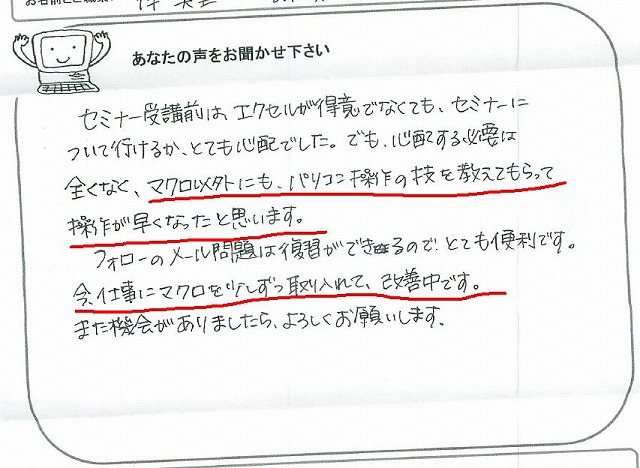 あなたの声をお聞かせ下さい
セミナー受講前は、エクセルが得意でなくても、セミナーに
ついて行けるか、とても心配でした。でも、心配する必要は
全くなく、マクロ以外にも、パソコン操作の技を教えてもらって
操作が早くなったと思います。
フォローのメール問題は復習ができるので、とても便利です。
今、仕事にマクロを少しずつ取り入れて、改善中です。
また機会がありましたら、よろしくお願いします。